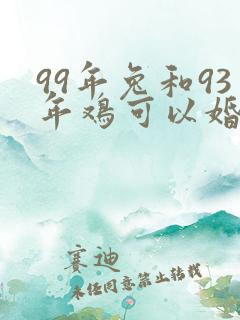 99年兔和93
年鸡可以婚
赛迪
未经同意禁止转载